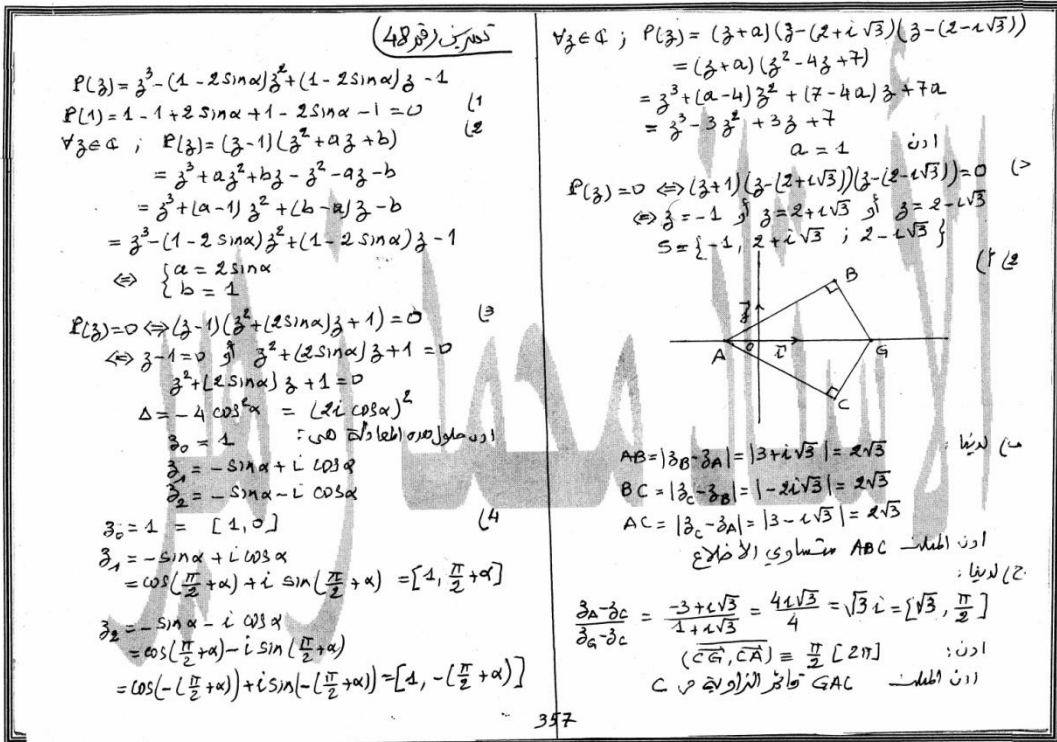 تمرين رقم 48
P(z) = z³ - (1 - 2sinα)z² + (1 - 2sinα)z - 1
P(1) = 1 - 1 + 2sinα + 1 - 2sinα - 1 = 0 (1
∀z∈ℂ ; P(z) = (z-1)(z² + az + b) (2
= z³ + az² + bz - z² - az - b
= z³ + (a-1)z² + (b-a)z - b
= z³ - (1 - 2sinα)z² + (1 - 2sinα)z - 1
⇔ { a = 2sinα
b = 1
P(z) = 0 ⇔ (z-1)(z² + (2sinα)z + 1) = 0 (3
⇔ z - 1 = 0 أو z² + (2sinα)z + 1 = 0
z² + (2sinα)z + 1 = 0
Δ = -4cos²α = (2i cosα)²
اذن حلول هذه المعادلة هي :
z₀ = 1
z₁ = -sinα + i cosα
z₂ = -sinα - i cosα
z₀ = 1 = [1, 0] (4
z₁ = -sinα + i cosα
= cos(π/2 + α) + i sin(π/2 + α) = [1, π/2 + α]
z₂ = -sinα - i cosα
= cos(π/2 + α) - i sin(π/2 + α)
= cos(-(π/2 + α)) + i sin(-(π/2 + α)) = [1, -(π/2 + α)]
∀z∈ℂ ; P(z) = (z+a)(z-(2+i√3)(z-(2-i√3))
= (z+a)(z² - 4z + 7)
= z³ + (a-4)z² + (7-4a)z + 7a
= z³ - 3z² + 3z + 7
اذن a = 1
P(z) = 0 ⇔ (z+1)(z-(2+i√3))(z-(2-i√3)) = 0 (ج
⇔ z = -1 أو z = 2+i√3 أو z = 2-i√3
S = {-1, 2+i√3 ; 2-i√3}
(2 أ)
B
A O G
C
ب) لدينا :
AB = |z_B - z_A| = |3 + i√3| = 2√3
BC = |z_C - z_B| = |-2i√3| = 2√3
AC = |z_C - z_A| = |3 - i√3| = 2√3
اذن المثلث ABC متساوي الاضلاع
ج) لدينا :
(z_A - z_C)/(z_G - z_C) = (-3 + i√3)/(1 + i√3) = 4i√3/4 = √3 i = [√3, π/2]
اذن : (CG, CA) ≡ π/2 [2π]
اذن المثلث GAC قائم الزاوية في C
الأستاذ محمد
357